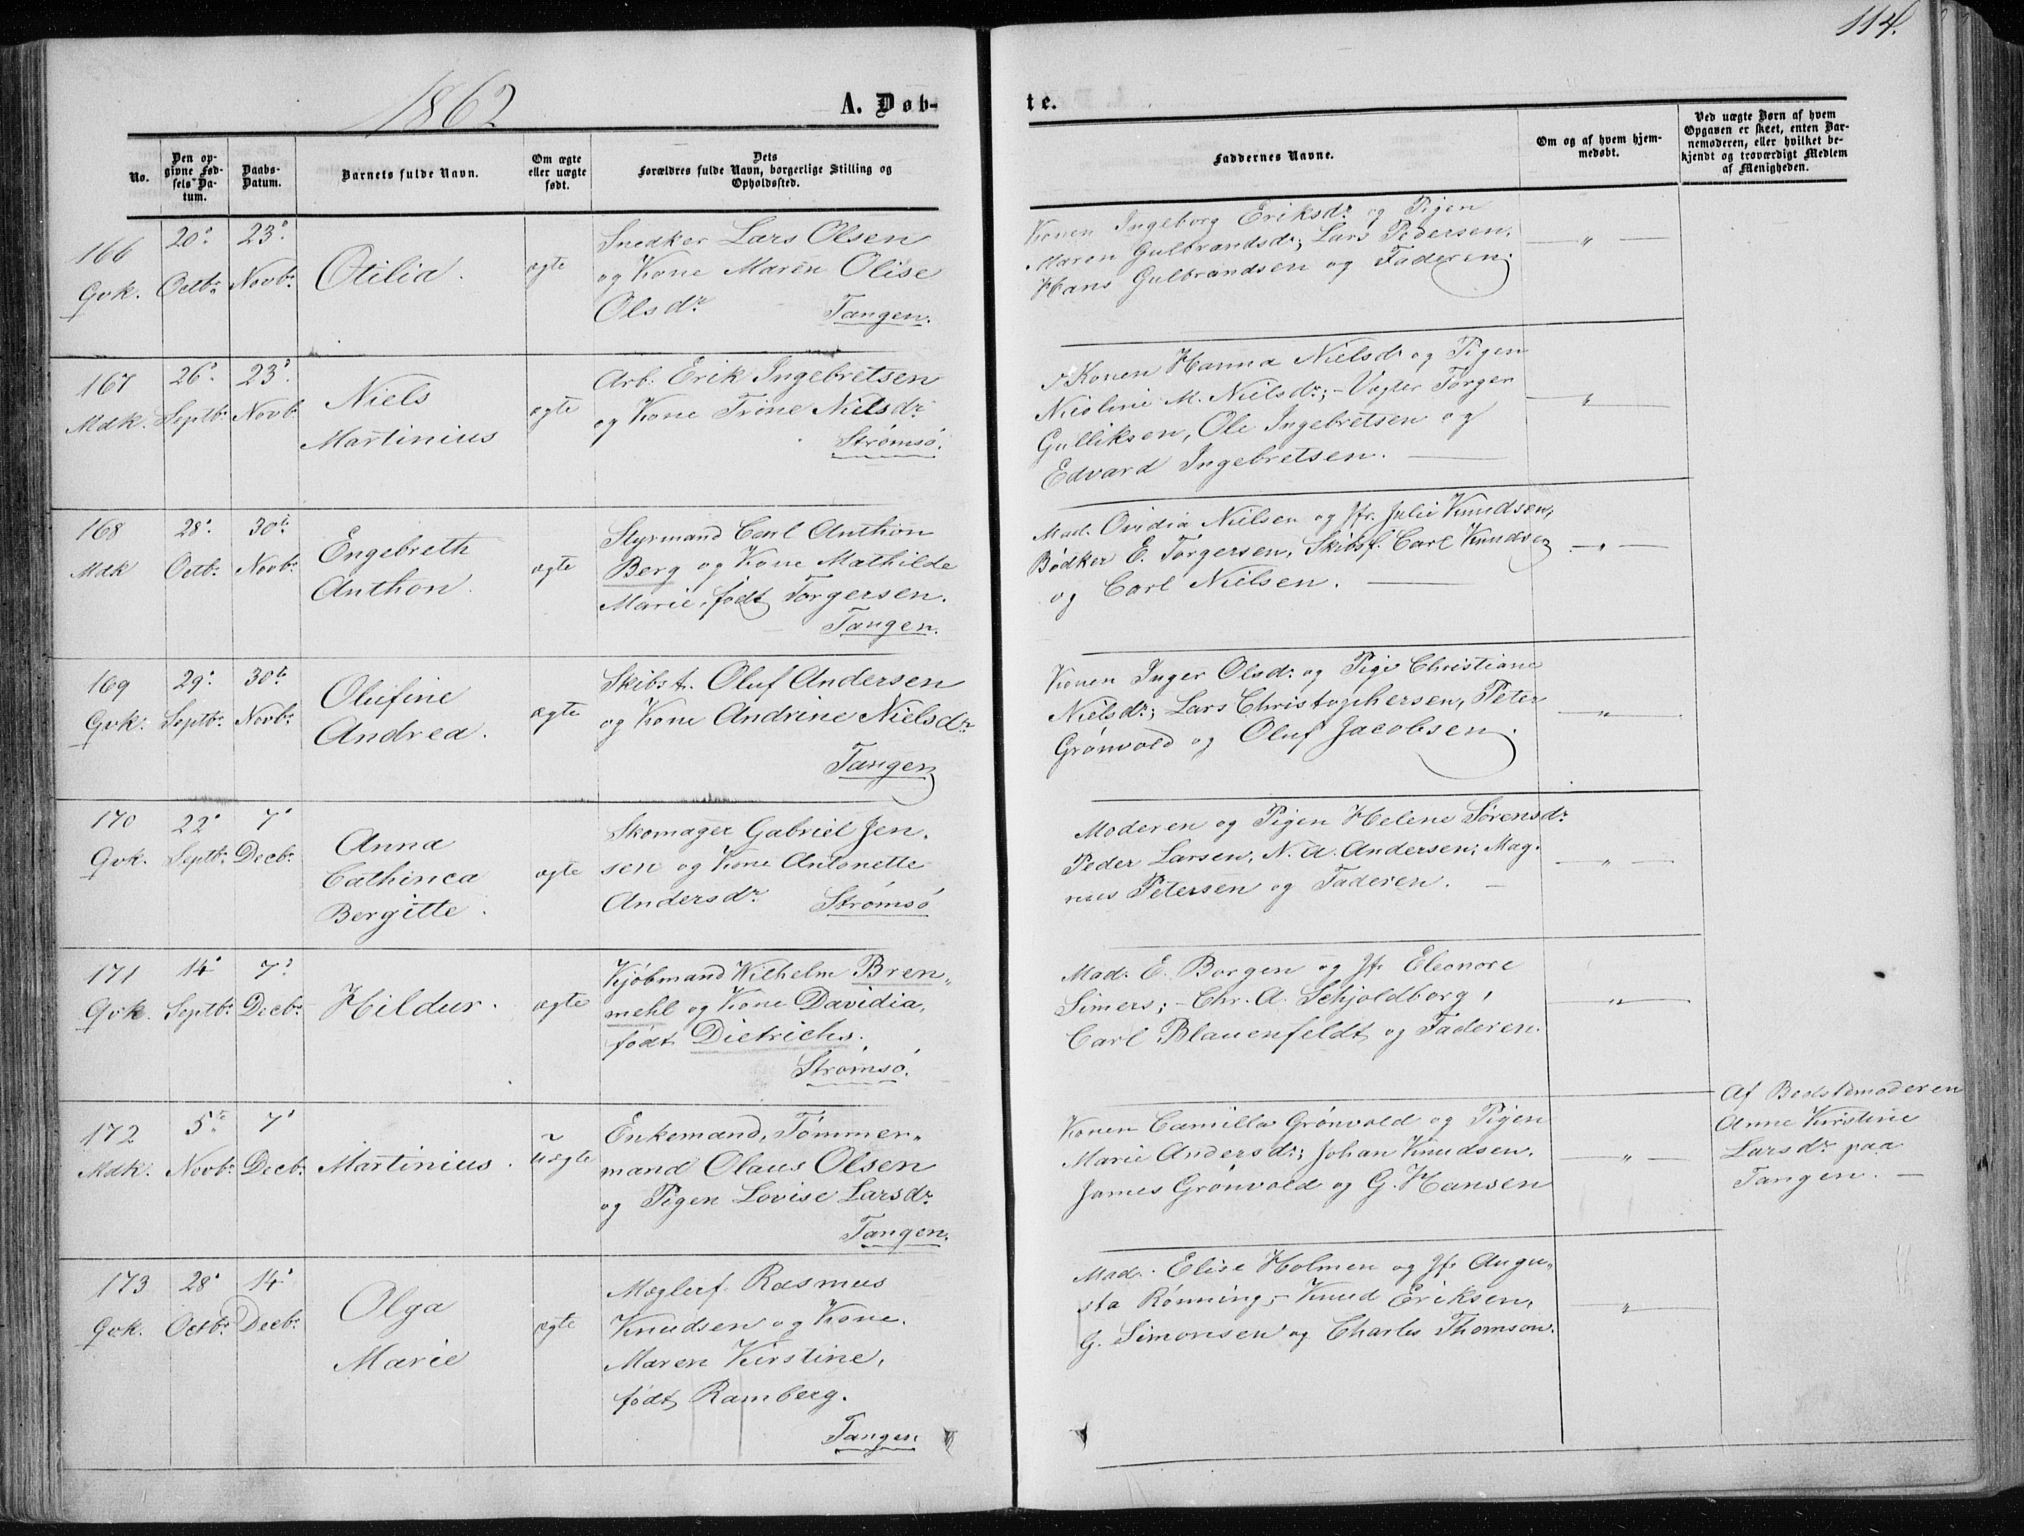 114.
1862
A. Døb-
te.
No.
Den op-
givne Fød-
sels Da-
tum.
Daabs-
Datum.
Barnets fulde Navn.
Om ægte
eller uægte
født.
Dets
Forældres fulde Navn, borgerlige Stilling og
Opholdssted.
Faddernes Navne.
Om og af hvem hjem-
medøbt.
Ved uægte Børn af hvem
Opgaven er skeet, enten Bar-
nemoderen, eller hvilket be-
kjendt og troværdigt Medlem
af Menigheden.
166
Qvk.
20de
Octbr.
23de
Novbr.
Otilia.
ægte
Snedker Lars Olsen
og Kone Maren Olise
Olsdr.
Tangen.
Konen Ingeborg Eriksdr. og Pigen
Maren Gulbrandsdr; Lars Pedersen,
Hans Gulbrandsen og Faderen.
— " —
167
Mdk.
26de
Septbr.
23de
Novbr.
Niels
Martinius
ægte
Arb. Erik Ingebretsen
og Kone Trine Nielsdr.
Strømsø.
Konen Hanna Nielsdr og Pigen
Nicoline M. Nielsdr; - Vægter Torger
Gulliksen, Ole Ingebretsen og
Edvard Ingebretsen.
— " —
168
Mdk
28de
Octbr.
30te
Novbr.
Engebreth
Anthon.
ægte
Styrmand Carl Anthon
Berg og Kone Mathilde
Marie, født Torgersen.
Tangen.
Mad. Ovidia Nielsen og Jfr. Julie Knudsen,
Bødker E. Torgersen, Skibsf. Carl Knudsen
og Carl Nielsen.
— " —
169
Qvk.
29de
Septbr.
30te
Novbr.
Olufine
Andrea.
ægte
Skibst. Oluf Andersen
og Kone Andrine Nielsdr.
Tangen
Konen Inger Olsdr. og Pige Christiane
Nielsdr; Lars Christophersen, Peter
Grønvold og Oluf Jacobsen.
— " —
170
Qvk.
22de
Septbr.
7de
Decbr.
Anna
Cathinca
Bergitte.
ægte
Skomager Gabriel Jen-
sen og Kone Antonette
Andersdr.
Strømsø
Moderen og Pigen Helene Sørensdr.
Peder Larsen, N. A. Andersen; Mag-
nus Petersen og Faderen.
— " —
171
Qvk.
14de
Septbr.
7de
Decbr.
Hildur.
ægte
Kjøbmand Wilhelm Bren-
mehl og Kone Davidia,
født Dietrichs.
Strømsø.
Mad. E. Borgen og Jfr Eleonore
Simers; - Chr. A. Schjoldborg,
Carl Blauenfeldt og Faderen.
— " —
172
Mdk.
5te
Novbr.
7de
Decbr.
Martinius.
uægte
Enkemand, Tømmer-
mand Olaus Olsen
og Pigen Lovise Larsdr.
Tangen.
Konen Camilla Grønvold og Pigen
Marie Andersdr; Johan Knudsen.
James Grønvold og G. Hansen
— " —
Af Bedstemoderen
Anne Kirstine
Larsdr. paa
Tangen. —
173
Qvk.
28de
Octbr.
14de
Decbr.
Olga
Marie
ægte
Mæglerf. Rasmus
Knudsen og Kone.
Maren Kirstine,
født Ramberg.
Tangen
Mad. Elise Holmen og Jfr Augu-
sta Rønning; - Knud Eriksen,
G. Simonsen og Charles Thomson.
— " —